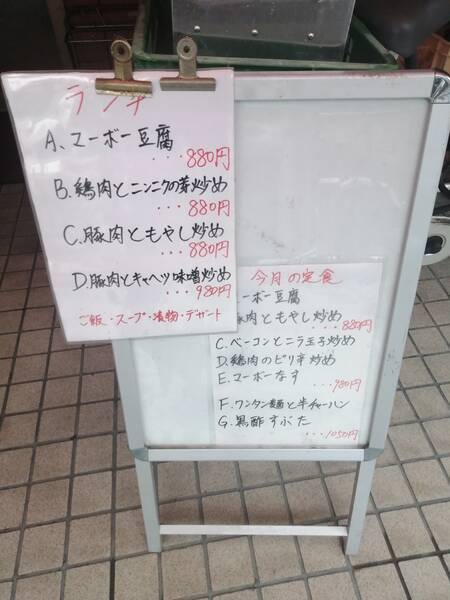 ランチ
A. マーボー豆腐
・・・880円
B. 鶏肉とニンニクの芽炒め
・・・880円
C. 豚肉ともやし炒め
・・・880円
D. 豚肉とキャベツ味噌炒め
・・・980円
ご飯・スープ・漬物・デザート
今月の定食
ーボー豆腐
豚肉ともやし炒め
・・・880円
C. ベーコンとニラ玉子炒め
D. 鶏肉のピリ辛炒め
E. マーボーなす
・・・980円
F. ワンタン麺と半チャーハン
G. 黒酢すぶた
・・・1050円